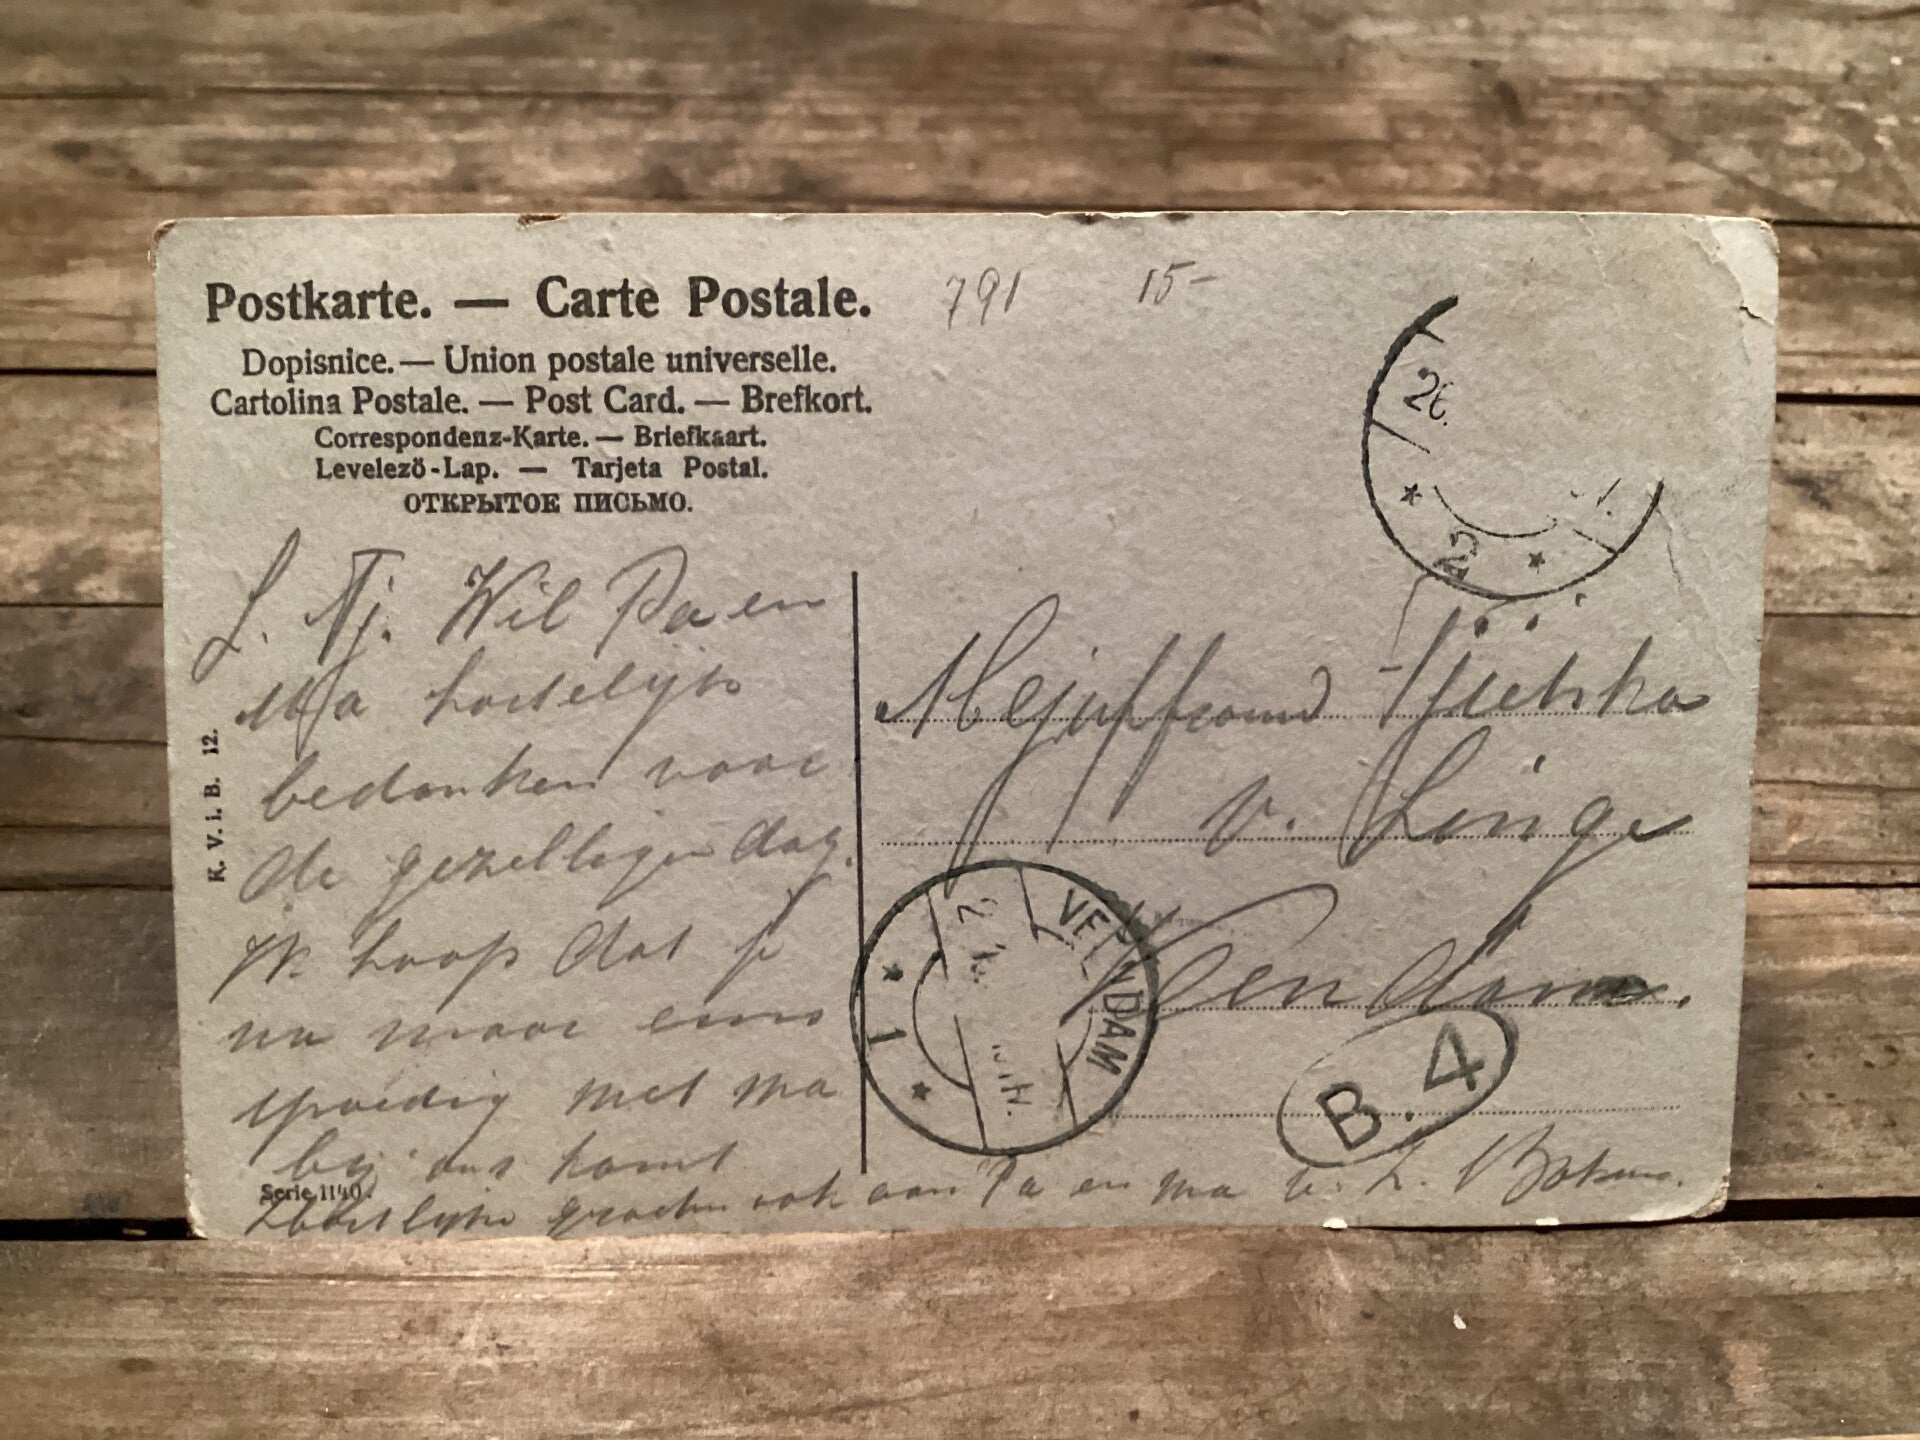 Postkarte. — Carte Postale.
Dopisnice. — Union postale universelle.
Cartolina Postale. — Post Card. — Brefkort.
Correspondenz-Karte. — Briefkaart.
Levelező-Lap. — Tarjeta Postal.
ОТКРЫТОЕ ПИСЬМО.
791 15-
26.
2
L. Tj. Wil Pa en
Ma hartelijk
bedanken voor
de gezellige dag.
Ik hoop dat je
nu maar eens
spoedig met ma
bij ons komt
Hartelijke groeten ook aan Pa en ma v. L.
K. V. i. B. 12.
Serie 1140.
Mejuffrouw
v. Linge
Veendam.
VEENDAM
1
B. 4